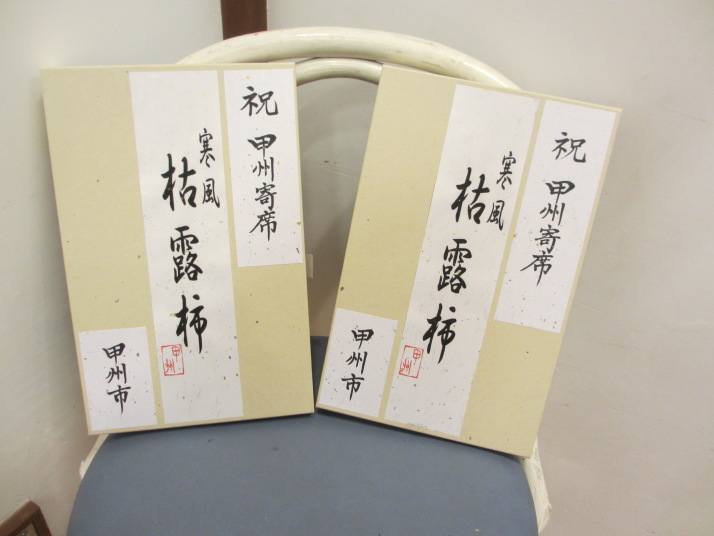 祝 甲州寄席
寒風
枯露柿
甲州
甲州市
祝 甲州寄席
寒風
枯露柿
甲州
甲州市